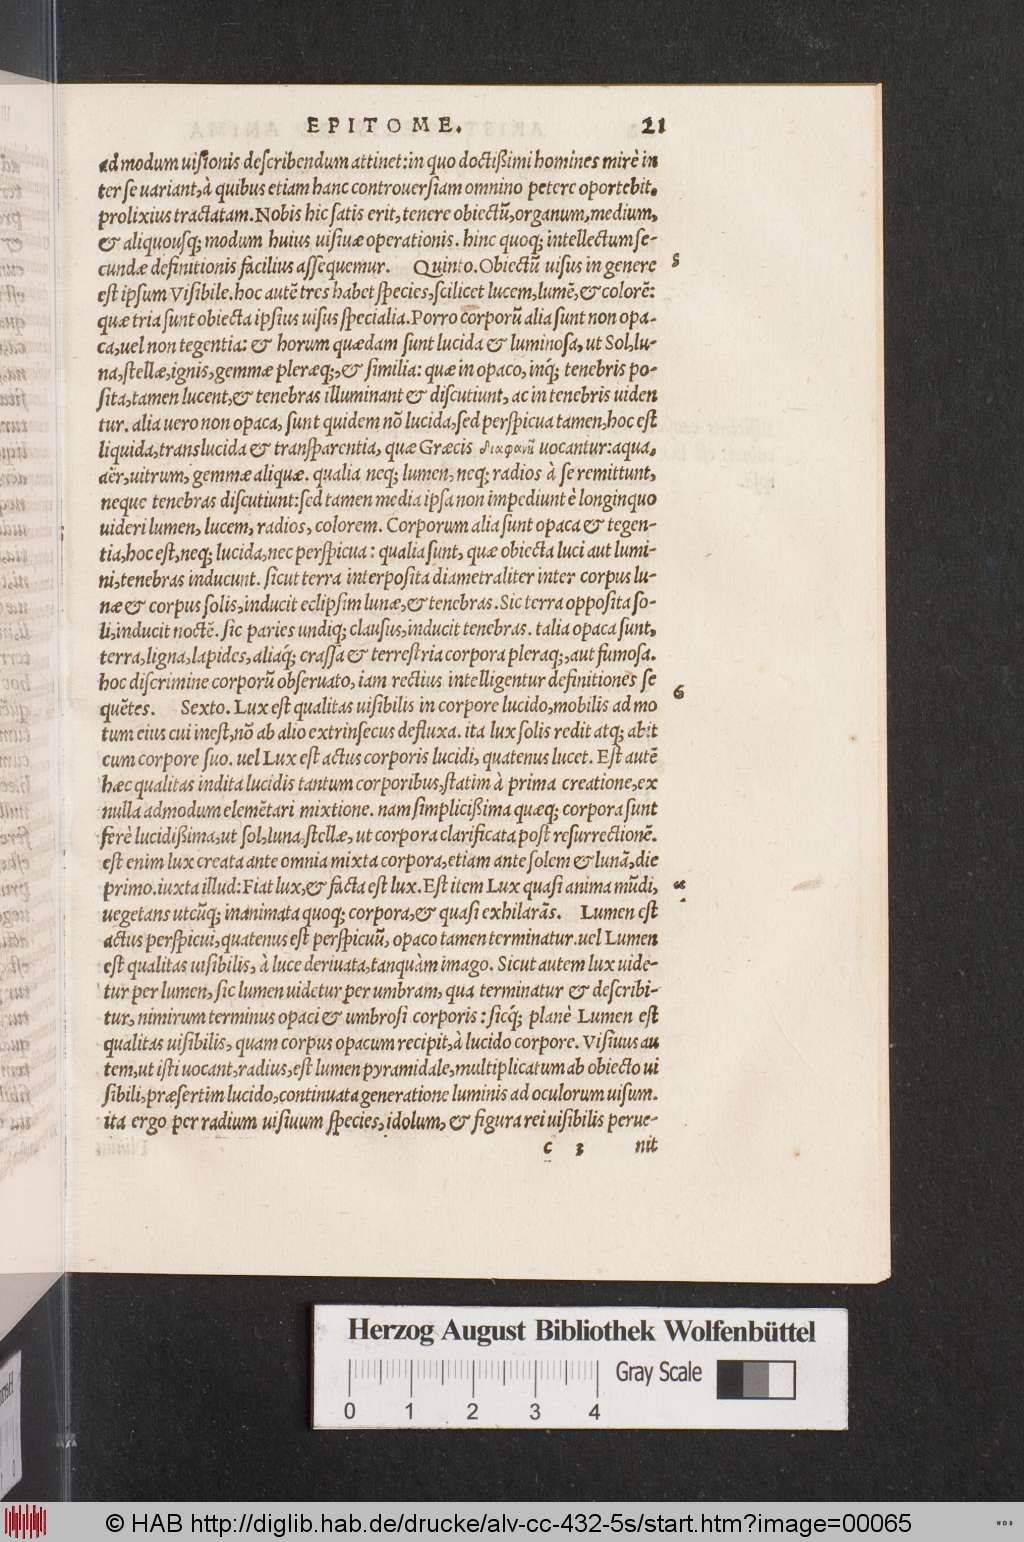 EPITOME. 21
ad modum uisionis describendum attinet: in quo doctißimi homines mirè in
ter se uariant, à quibus etiam hanc controuersiam omnino petere oportebit,
prolixius tractatam. Nobis hic satis erit, tenere obiectũ, organum, medium,
& aliquousq; modum huius uisiuæ operationis. hinc quoq; intellectum se-
cundæ definitionis facilius assequemur. Quinto. Obiectũ uisus in genere 5
est ipsum Visibile. hoc autẽ tres habet species, scilicet lucem, lumẽ, & colorẽ:
quæ tria sunt obiecta ipsius uisus specialia. Porro corporũ alia sunt non opa-
ca, uel non tegentia: & horum quædam sunt lucida & luminosa, ut Sol, lu-
na, stellæ, ignis, gemmæ pleræq;, & similia: quæ in opaco, inq́; tenebris po-
sita, tamen lucent, & tenebras illuminant & discutiunt, ac in tenebris uiden
tur. alia uero non opaca, sunt quidem nõ lucida, sed perspicua tamen, hoc est
liquida, translucida & transparentia, quæ Græcis διαφανῆ uocantur: aqua,
aër, uitrum, gemmæ aliquæ. qualia neq; lumen, neq; radios à se remittunt,
neque tenebras discutiunt: sed tamen media ipsa non impediunt è longinquo
uideri lumen, lucem, radios, colorem. Corporum alia sunt opaca & tegen-
tia, hoc est, neq; lucida, nec perspicua: qualia sunt, quæ obiecta luci aut lumi-
ni, tenebras inducunt. sicut terra interposita diametraliter inter corpus lu-
næ & corpus solis, inducit eclipsim lunæ, & tenebras. Sic terra opposita so-
li, inducit noctẽ. sic paries undiq; clausus, inducit tenebras. talia opaca sunt,
terra, ligna, lapides, aliaq́; crassa & terrestria corpora pleraq;, aut fumosa.
hoc discrimine corporũ obseruato, iam rectius intelligentur definitiones se
quẽtes. Sexto. Lux est qualitas uisibilis in corpore lucido, mobilis ad mo 6
tum eius cui inest, nõ ab alio extrinsecus defluxa. ita lux solis redit atq; abit
cum corpore suo. uel Lux est actus corporis lucidi, quatenus lucet. Est autẽ
hæc qualitas indita lucidis tantum corporibus, statim à prima creatione, ex
nulla admodum elemẽtari mixtione. nam simplicißima quæq; corpora sunt
ferè lucidißima, ut sol, luna, stellæ, ut corpora clarificata post resurrectionẽ.
est enim lux creata ante omnia mixta corpora, etiam ante solem & lunã, die
primo. iuxta illud: Fiat lux, & facta est lux. Est item Lux quasi anima mũdi,
uegetans utcũq; inanimata quoq; corpora, & quasi exhilarãs. Lumen est
actus perspicui, quatenus est perspicuũ, opaco tamen terminatur. uel Lumen
est qualitas uisibilis, à luce deriuata, tanquàm imago. Sicut autem lux uide-
tur per lumen, sic lumen uidetur per umbram, qua terminatur & describi-
tur, nimirum terminus opaci & umbrosi corporis: sicq́; planè Lumen est
qualitas uisibilis, quam corpus opacum recipit, à lucido corpore. Visiuus au
tem, ut isti uocant, radius, est lumen pyramidale, multiplicatum ab obiecto ui
sibili, præsertim lucido, continuata generatione luminis ad oculorum uisum.
ita ergo per radium uisiuum species, idolum, & figura rei uisibilis perue-
c 3 nit
Herzog August Bibliothek Wolfenbüttel
Gray Scale
0 1 2 3 4
© HAB http://diglib.hab.de/drucke/alv-cc-432-5s/start.htm?image=00065